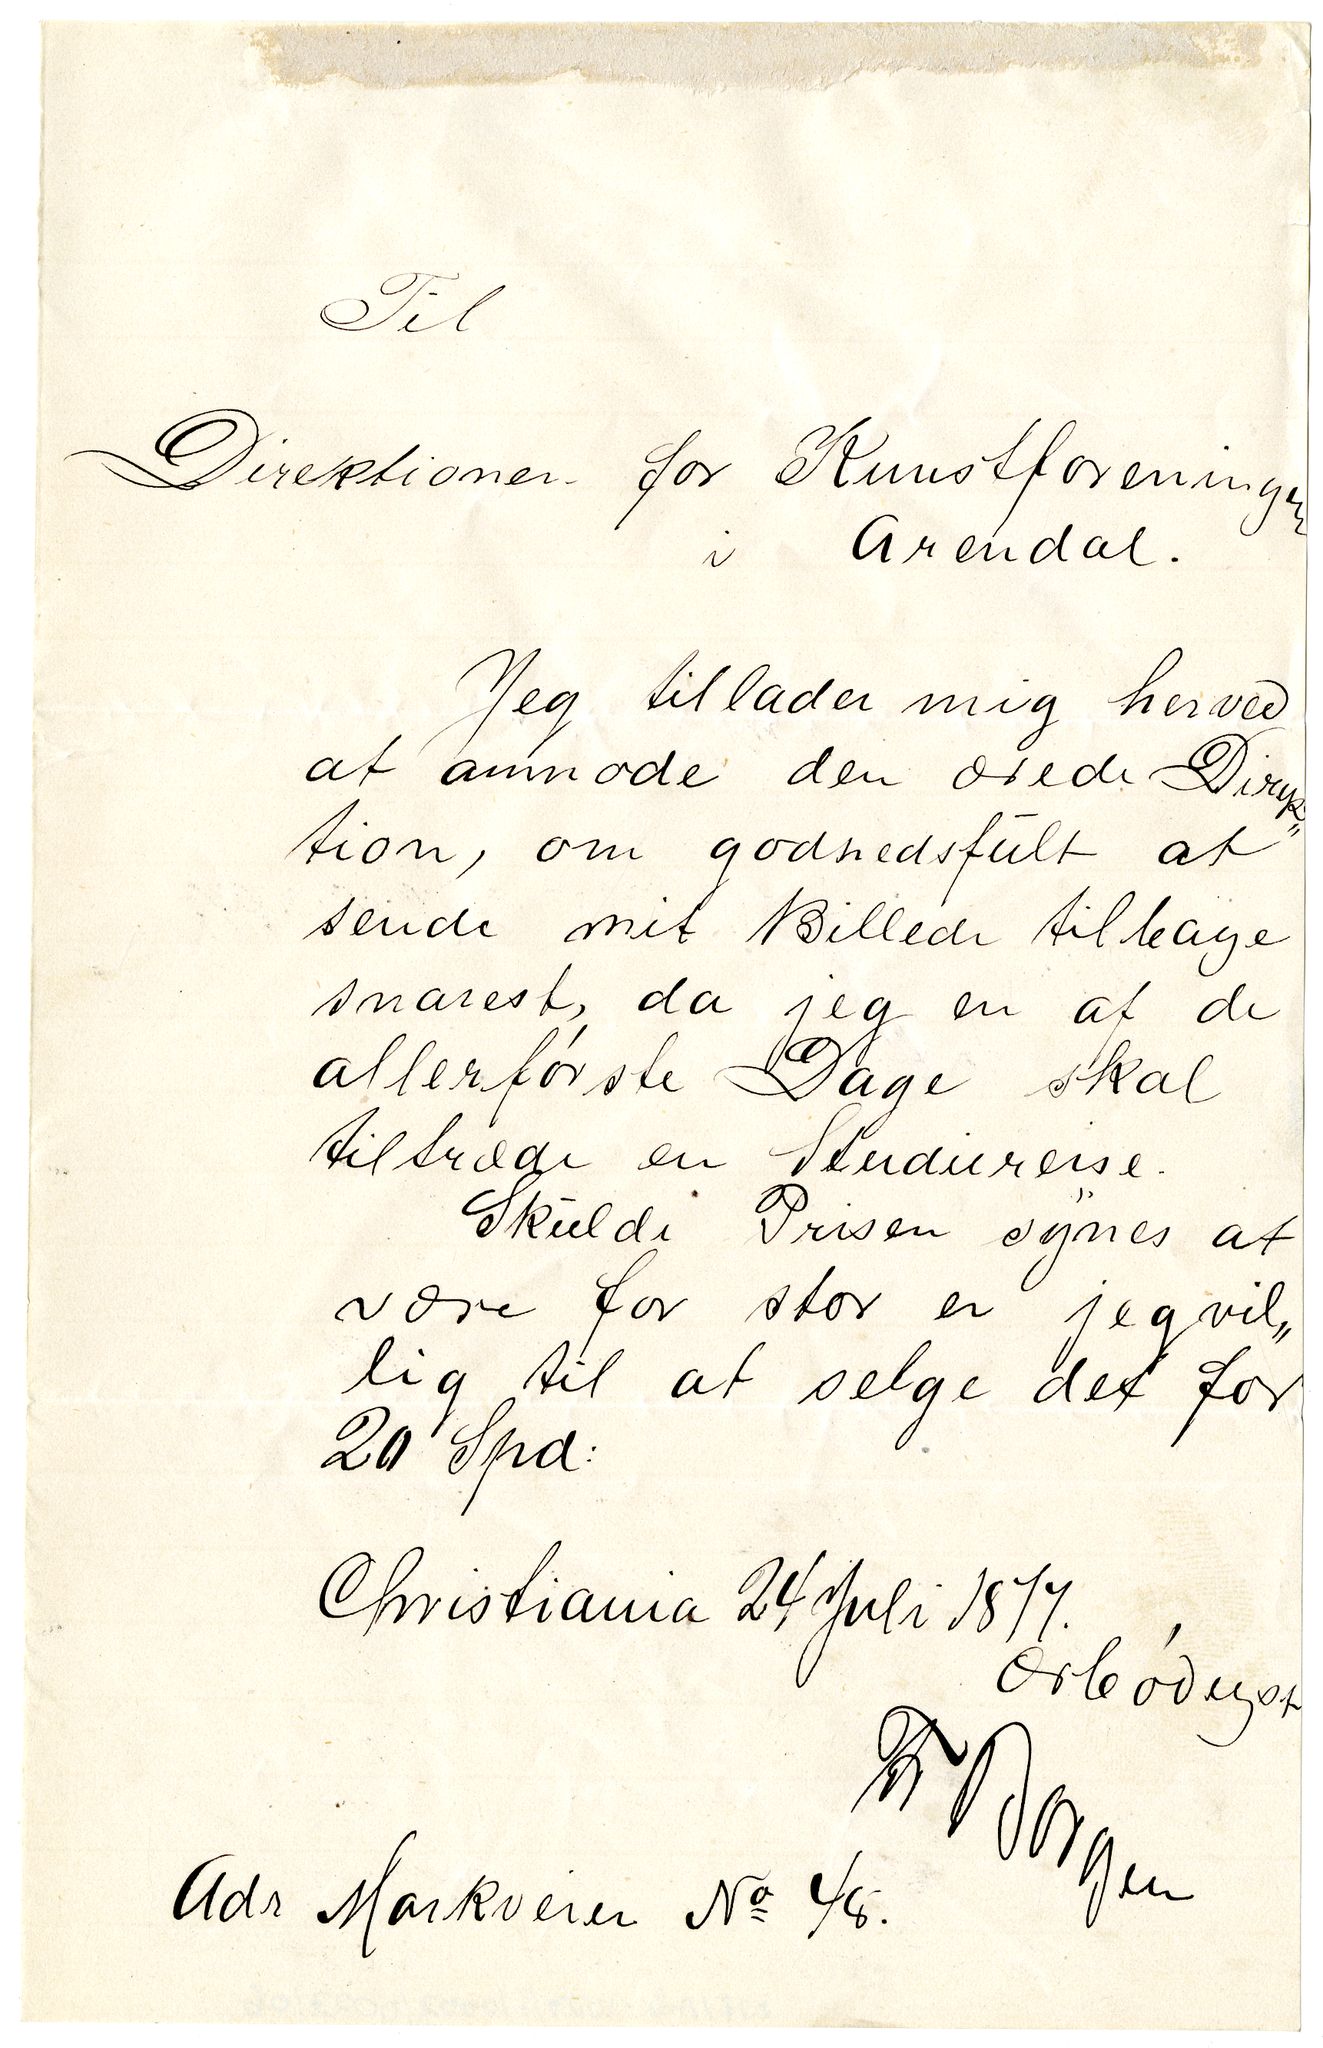 Til
Direktionen for Kunstforeningen
i Arendal.
Jeg tillader mig herved
at anmode den ærede Direk„
tion, om godhedsfult at
sende mit Billede tilbage
snarest, da jeg en af de
allerförste Dage skal
tiltræde en Studiereise.
Skulde Prisen synes at
være for stor er jeg vil„
lig til at selge det for
20 Spd:
Christiania 24 Juli 1877.
ærbödigst
Fr Borgen
Adr Markveien No 48.